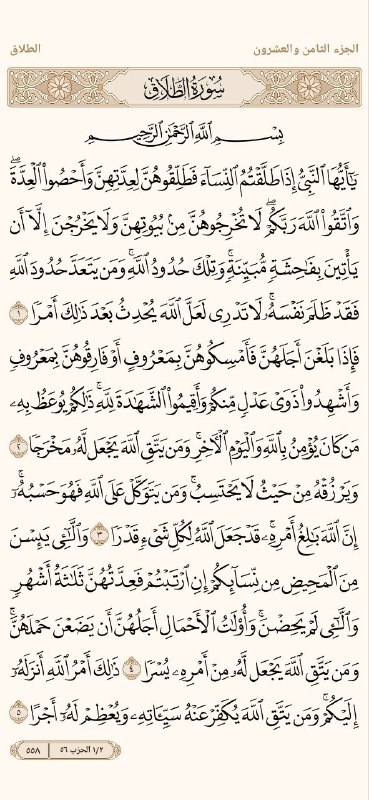 الجزء الثامن والعشرون
الطلاق
سُورَةُ الطَّلَاقِ
بِسْمِ ٱللَّهِ ٱلرَّحْمَٰنِ ٱلرَّحِيمِ
يَٰٓأَيُّهَا ٱلنَّبِىُّ إِذَا طَلَّقْتُمُ ٱلنِّسَآءَ فَطَلِّقُوهُنَّ لِعِدَّتِهِنَّ وَأَحْصُوا۟ ٱلْعِدَّةَۖ
وَٱتَّقُوا۟ ٱللَّهَ رَبَّكُمْۖ لَا تُخْرِجُوهُنَّ مِنۢ بُيُوتِهِنَّ وَلَا يَخْرُجْنَ إِلَّآ أَن
يَأْتِينَ بِفَٰحِشَةٍ مُّبَيِّنَةٍۚ وَتِلْكَ حُدُودُ ٱللَّهِۚ وَمَن يَتَعَدَّ حُدُودَ ٱللَّهِ
فَقَدْ ظَلَمَ نَفْسَهُۥۚ لَا تَدْرِى لَعَلَّ ٱللَّهَ يُحْدِثُ بَعْدَ ذَٰلِكَ أَمْرًا ١
فَإِذَا بَلَغْنَ أَجَلَهُنَّ فَأَمْسِكُوهُنَّ بِمَعْرُوفٍ أَوْ فَارِقُوهُنَّ بِمَعْرُوفٍ
وَأَشْهِدُوا۟ ذَوَىْ عَدْلٍ مِّنكُمْ وَأَقِيمُوا۟ ٱلشَّهَٰدَةَ لِلَّهِۚ ذَٰلِكُمْ يُوعَظُ بِهِۦ
مَن كَانَ يُؤْمِنُ بِٱللَّهِ وَٱلْيَوْمِ ٱلْءَاخِرِۚ وَمَن يَتَّقِ ٱللَّهَ يَجْعَل لَّهُۥ مَخْرَجًا ٢
وَيَرْزُقْهُ مِنْ حَيْثُ لَا يَحْتَسِبُۚ وَمَن يَتَوَكَّلْ عَلَى ٱللَّهِ فَهُوَ حَسْبُهُۥٓۚ
إِنَّ ٱللَّهَ بَٰلِغُ أَمْرِهِۦۚ قَدْ جَعَلَ ٱللَّهُ لِكُلِّ شَىْءٍ قَدْرًا ٣ وَٱلَّٰٓـِٔى يَئِسْنَ
مِنَ ٱلْمَحِيضِ مِن نِّسَآئِكُمْ إِنِ ٱرْتَبْتُمْ فَعِدَّتُهُنَّ ثَلَٰثَةُ أَشْهُرٍ
وَٱلَّٰٓـِٔى لَمْ يَحِضْنَۚ وَأُو۟لَٰتُ ٱلْأَحْمَالِ أَجَلُهُنَّ أَن يَضَعْنَ حَمْلَهُنَّۚ
وَمَن يَتَّقِ ٱللَّهَ يَجْعَل لَّهُۥ مِنْ أَمْرِهِۦ يُسْرًا ٤ ذَٰلِكَ أَمْرُ ٱللَّهِ أَنزَلَهُۥٓ
إِلَيْكُمْۚ وَمَن يَتَّقِ ٱللَّهَ يُكَفِّرْ عَنْهُ سَيِّـَٔاتِهِۦ وَيُعْظِمْ لَهُۥٓ أَجْرًا ٥
١/٢ الحزب ٥٦
٥٥٨